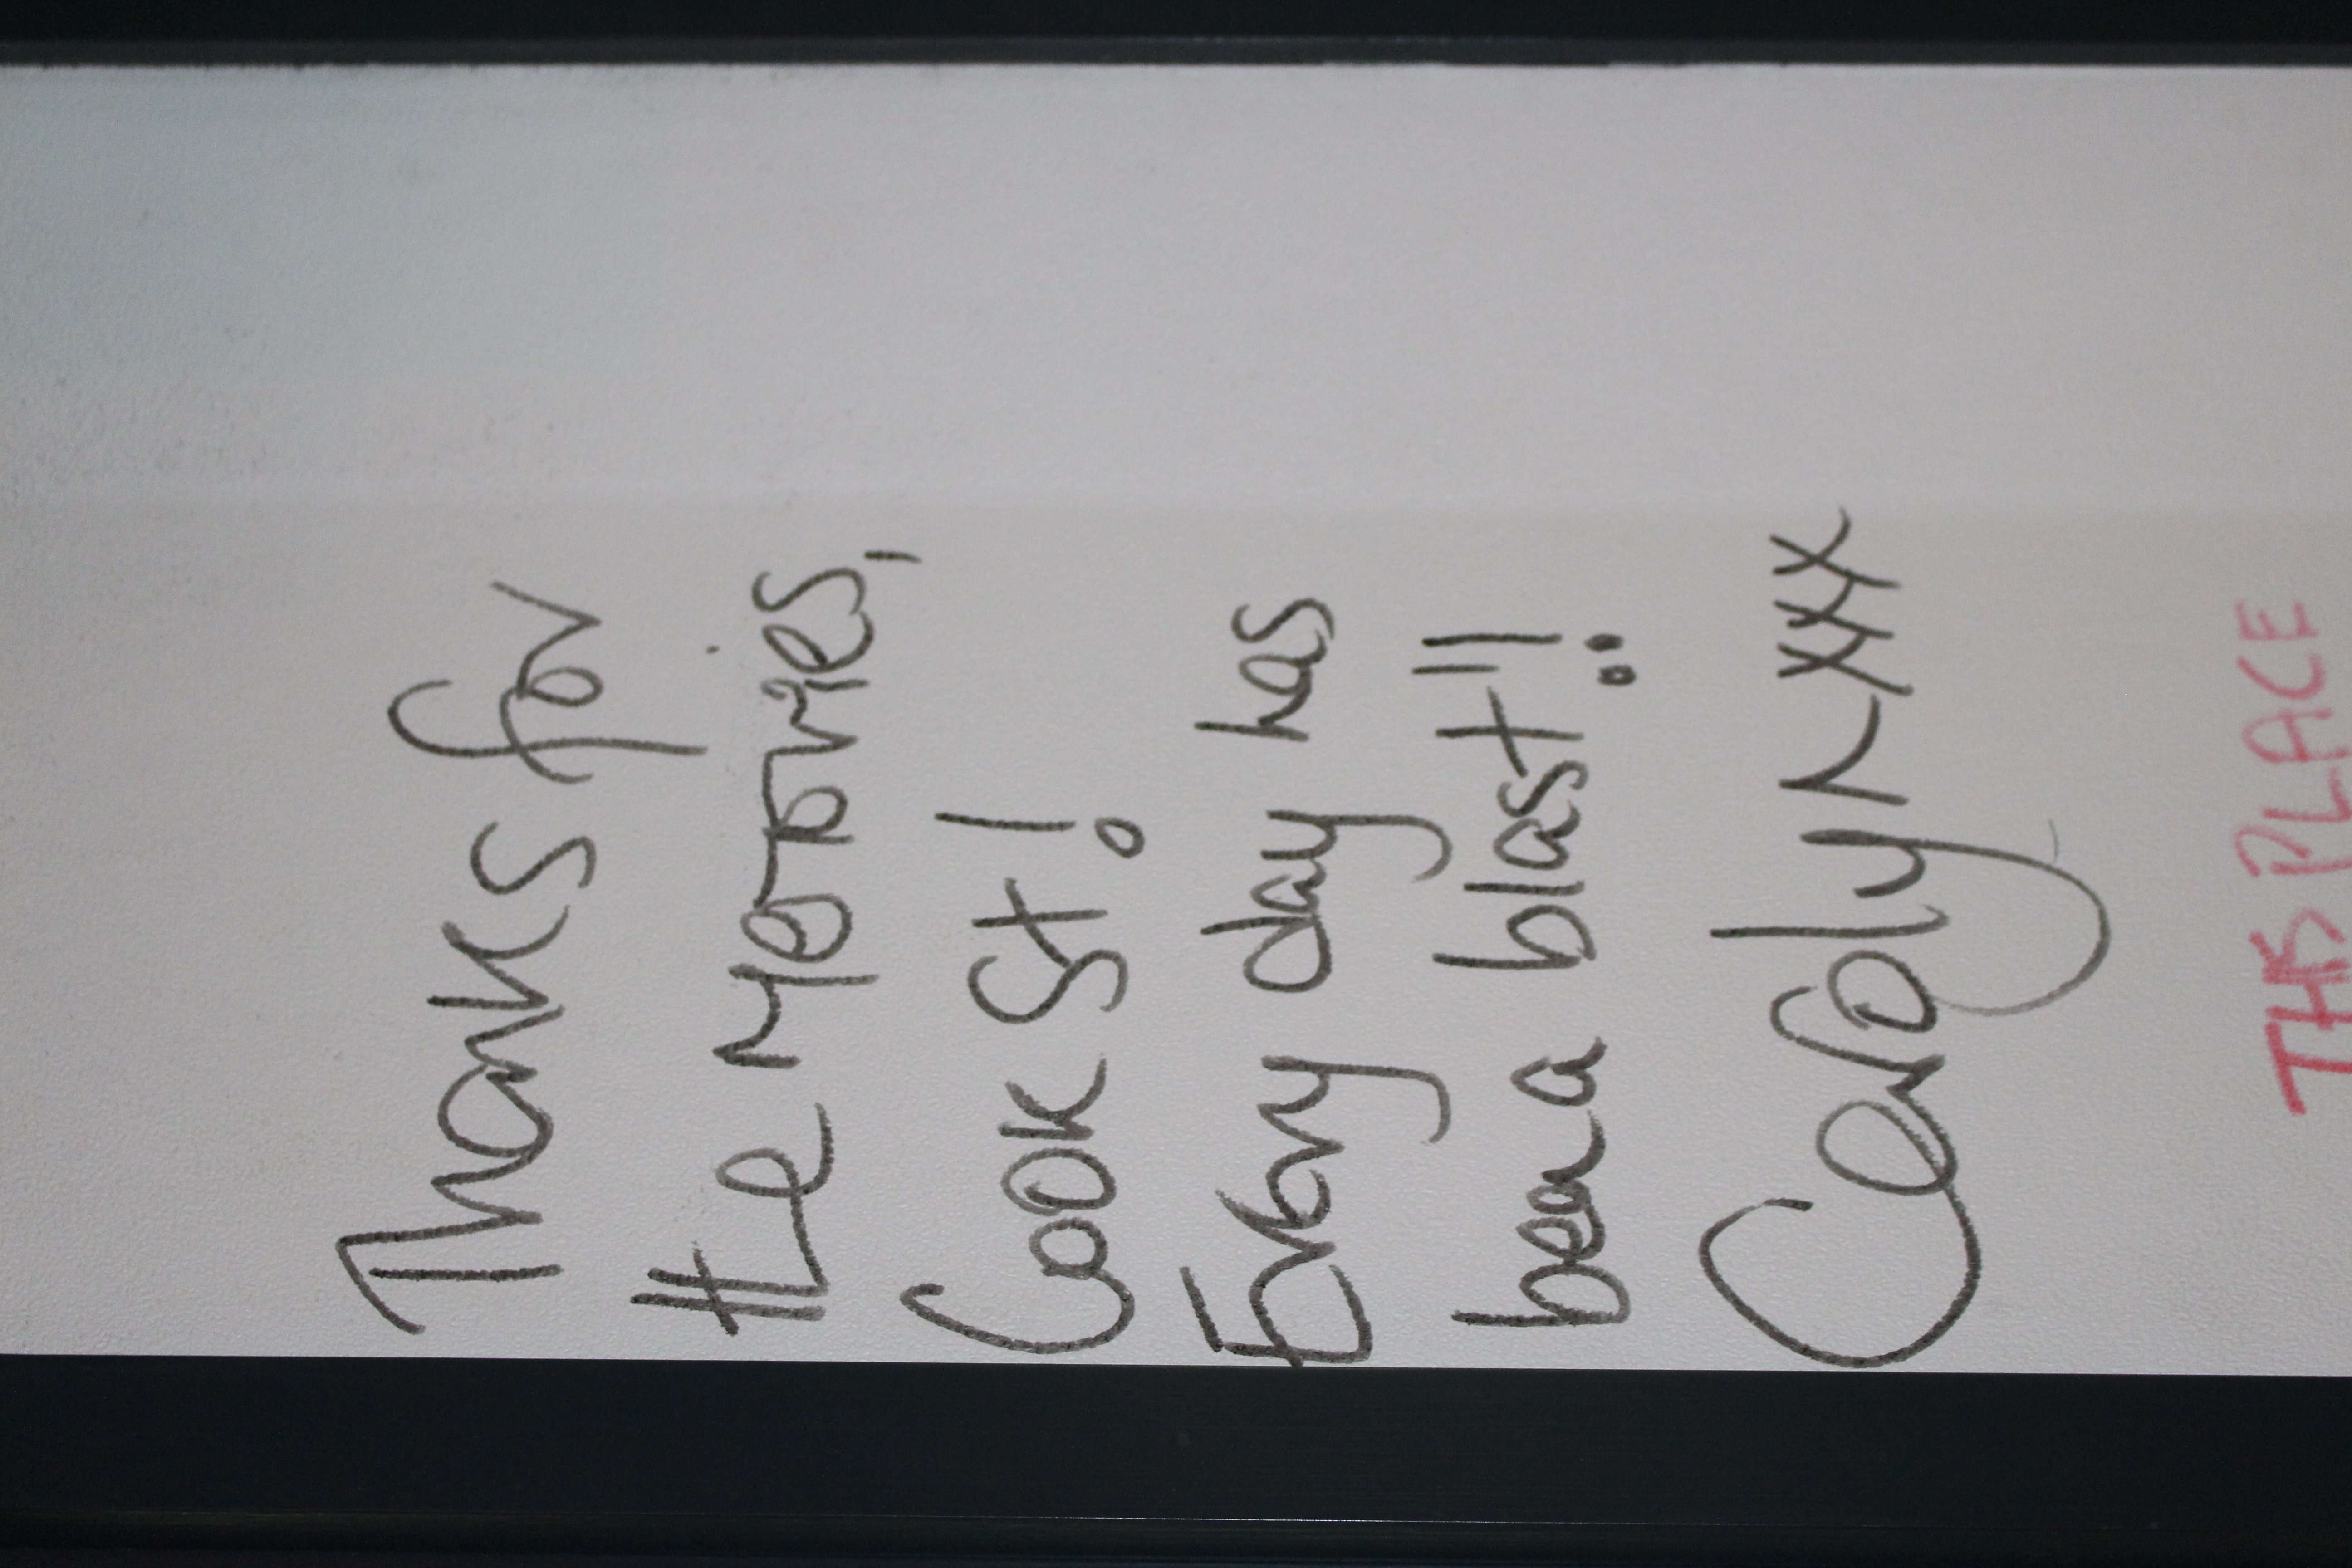 Thanks for
the memories,
Cook St!
Every day has
been a blast!!
Carolyn xxx
THIS PLACE